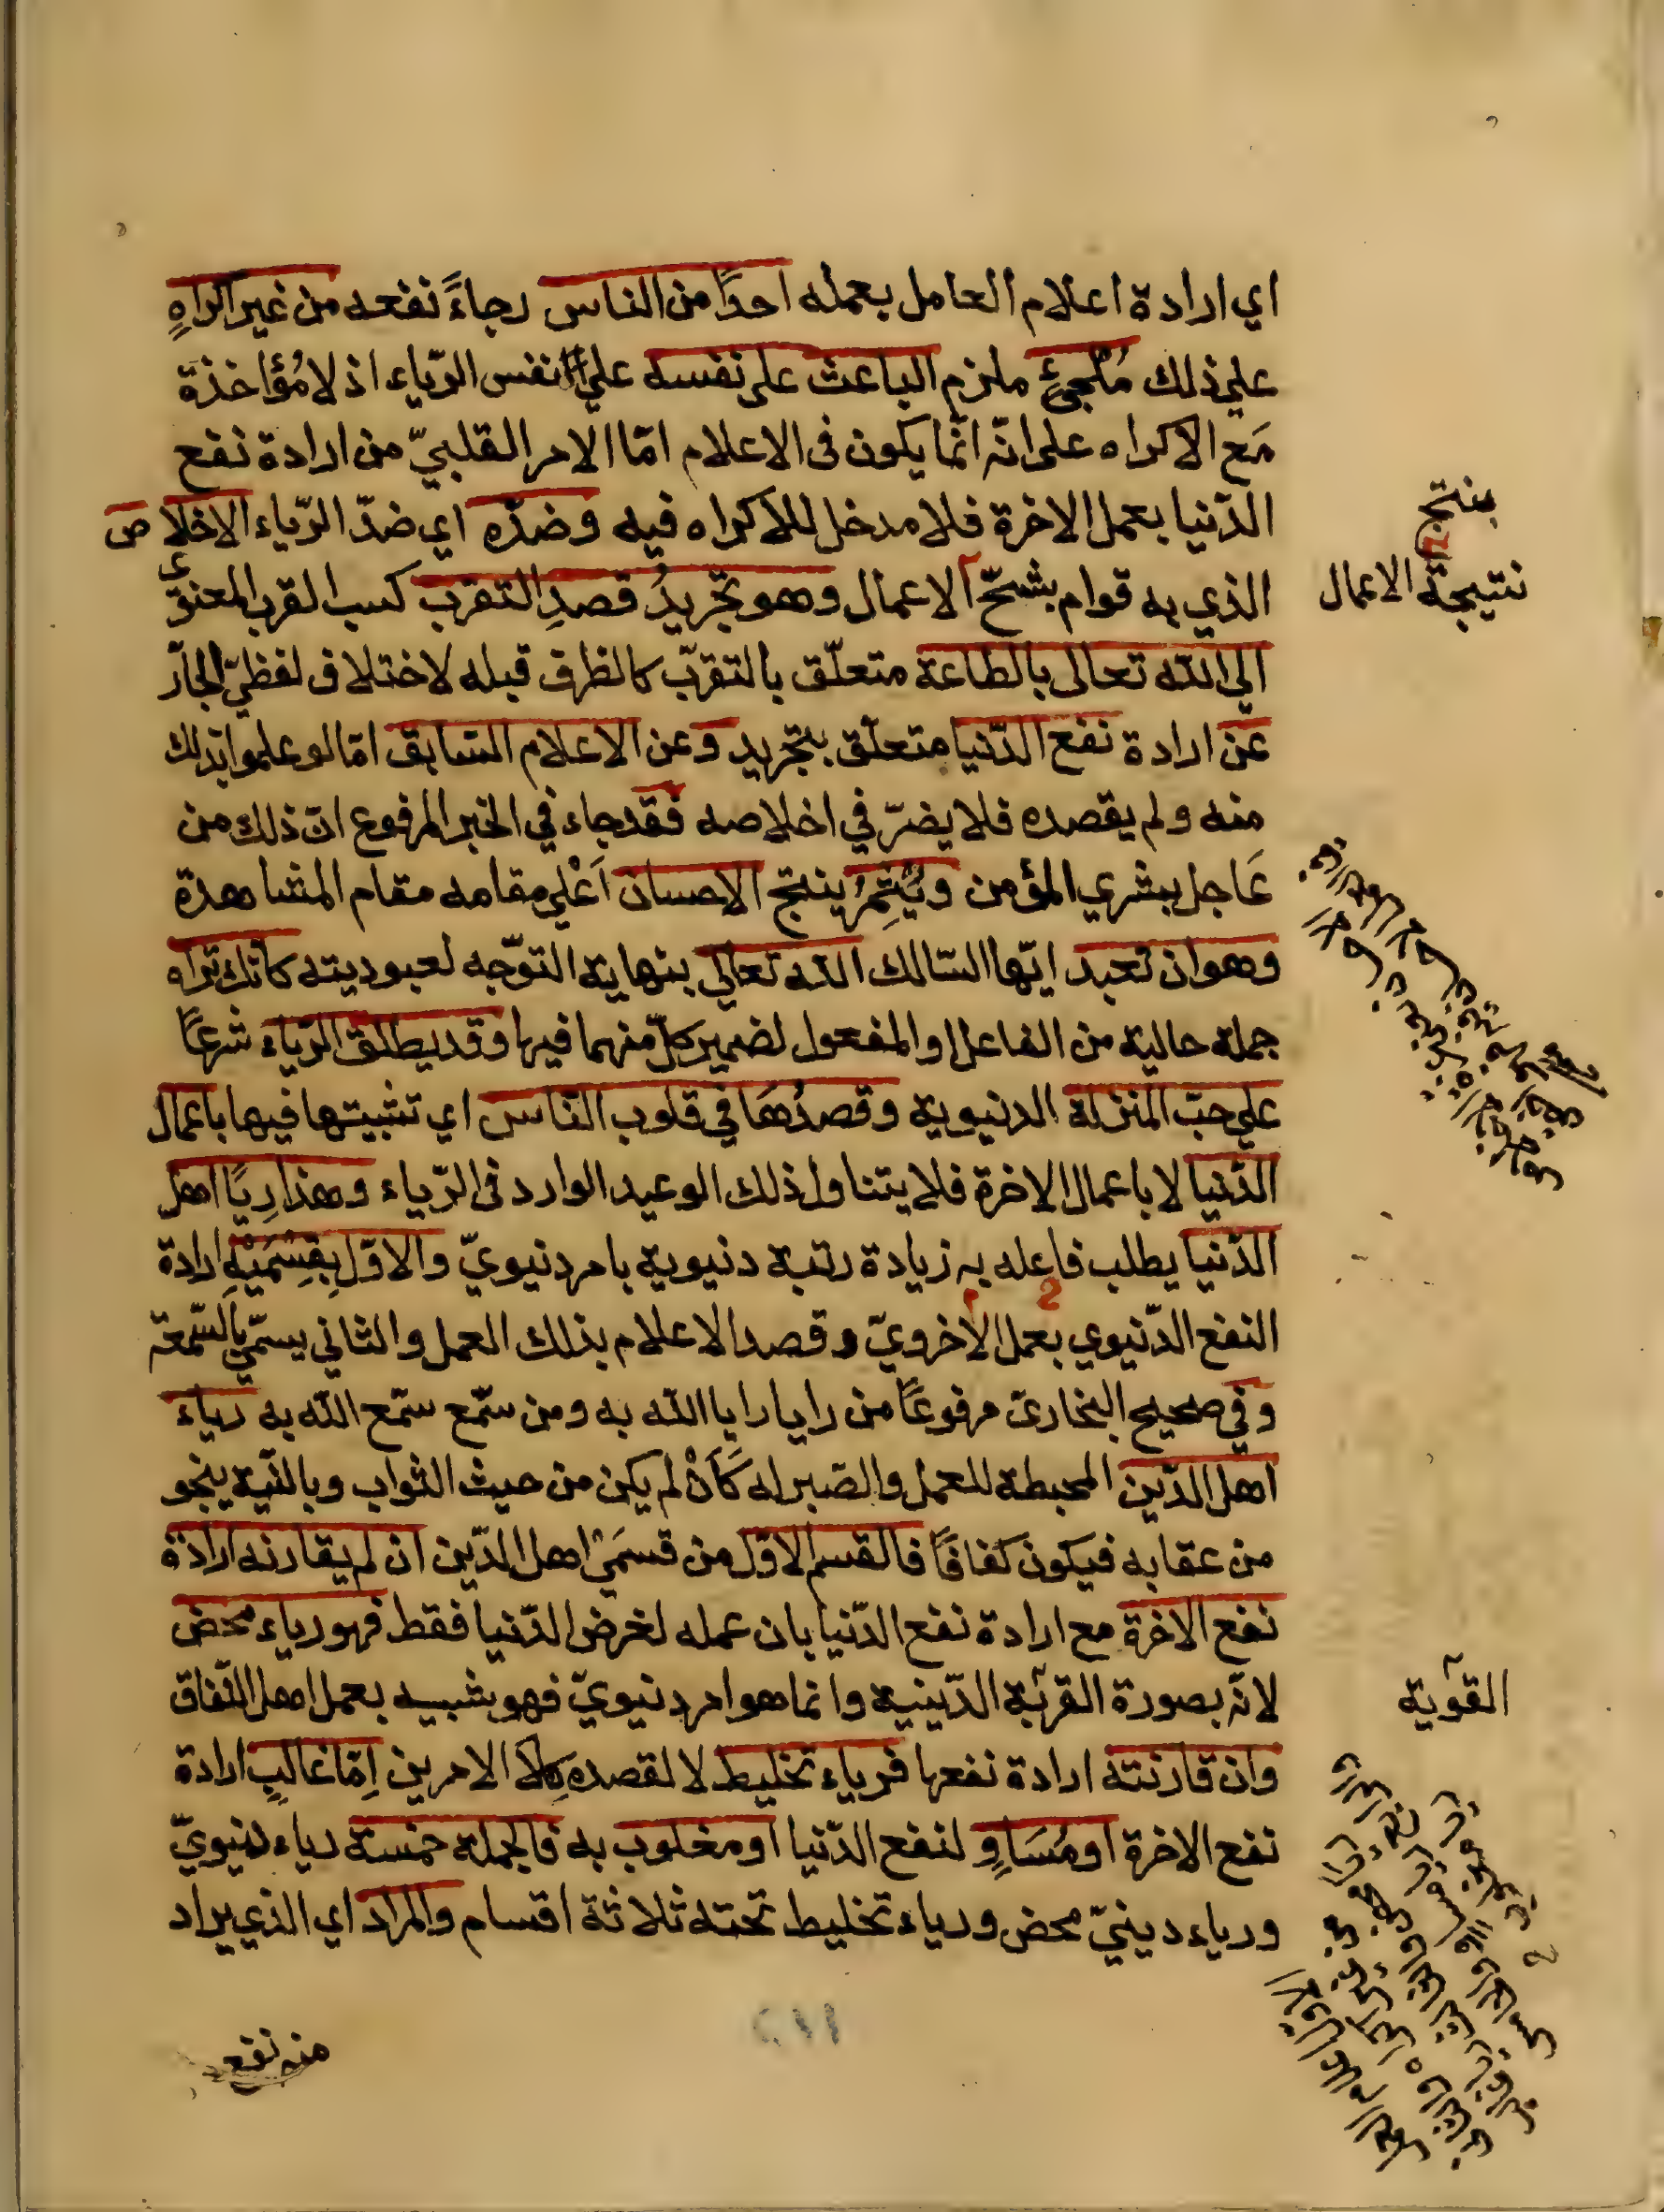 اي ارادة اعلام العامل بعمله احدًا من الناس رجاءً نفعه من غير اكراهٍ
على ذلك مُلْجِئٍ ملزم الباعث على نفسه على نفس الرّياء اذ لا مُؤاخذة
مَع الاكراه على انّه انّما يكون فى الاعلام امّا الامر القلبيّ من ارادة نفع
الدّنيا بعمل الاخرة فلا مدخل للاكراه فيه وضدّه اي ضدّ الرّياء الاخلاص
الذي به قوام الاعمال وهو تجريدُ قصدِ التقرب كسب القرب المعنوي
الى الله تعالى بالطاعة متعلّق بالتقرّب كالظرف قبله لاختلاف لفظيّ الجارّ
عن ارادة نفع الدّنيا متعلّق بتجريد وعن الاعلام السّابق امّا لو علموا بذلك
منه ولم يقصده فلا يضرّ في اخلاصه فقد جاء في الخبر المرفوع انّ ذلك من
عَاجل بشري المؤمن ويُثمِرُ ينتج الاحسان اَعْلى مقامه مقام المشاهدة
وهو ان تعبد ايّها السّالك الله تعالى بنهاية التوجّه لعبوديته كانّك تراه
جملة حالية من الفاعل او المفعول لضمير كلّ منهما فيها وقد يطلق الرّياء شرعًا
على حبّ المنزلة الدنيوية وقصدُهَا في قلوب النّاس اي تثبيتها فيها باعمال
الدّنيا لا باعمال الاخرة فلا يتناول ذلك الوعيد الوارد فى الرّياء وهذا رِيَا اهل
الدّنيا يطلب فاعله به زيادة رتبة دنيوية بامر دنيويّ والاوّل بِقِسْمَيْهِ ارادة
النفع الدّنيوي بعمل الاخرويّ وقصد الاعلام بذلك العمل والثاني يسمّي بالسّمعة
وفي صحيح البخارىّ مرفوعًا من رايا رايا الله به ومن سمّع سمّع الله به رياء
اهل الدّين المحبطة للعمل والصّير له كَاَنْ لم يكن من حيث الثواب وبالنّية ينجو
من عقابه فيكون كفافًا فالقسم الاوّل من قسمَيْ اهل الدّين ان لم يقارنه ارادة
نفع الاخرة مع ارادة نفع الدّنيا بان عمله لغرض الدّنيا فقط فهو رياء محض
لانّه بصورة القربة الدّينية وانما هو امر دنيويّ فهو شبيه بعمل اهل النّفاق
وان قارنته ارادة نفعها فرياء تخليط لا لقصده كِلا الامرين اِمّا غالبٍ ارادة
نفع الاخرة او مُسَاوٍ لنفع الدّنيا او مغلوب به فالجملة خمسة رياء دنيويّ
ورياء دينيّ محض ورياء تخليط تحته ثلاثة اقسام والمراد اي الذي يراد
ينتج
نتيجة الاعمال
القوية
منه نفع
٢١١